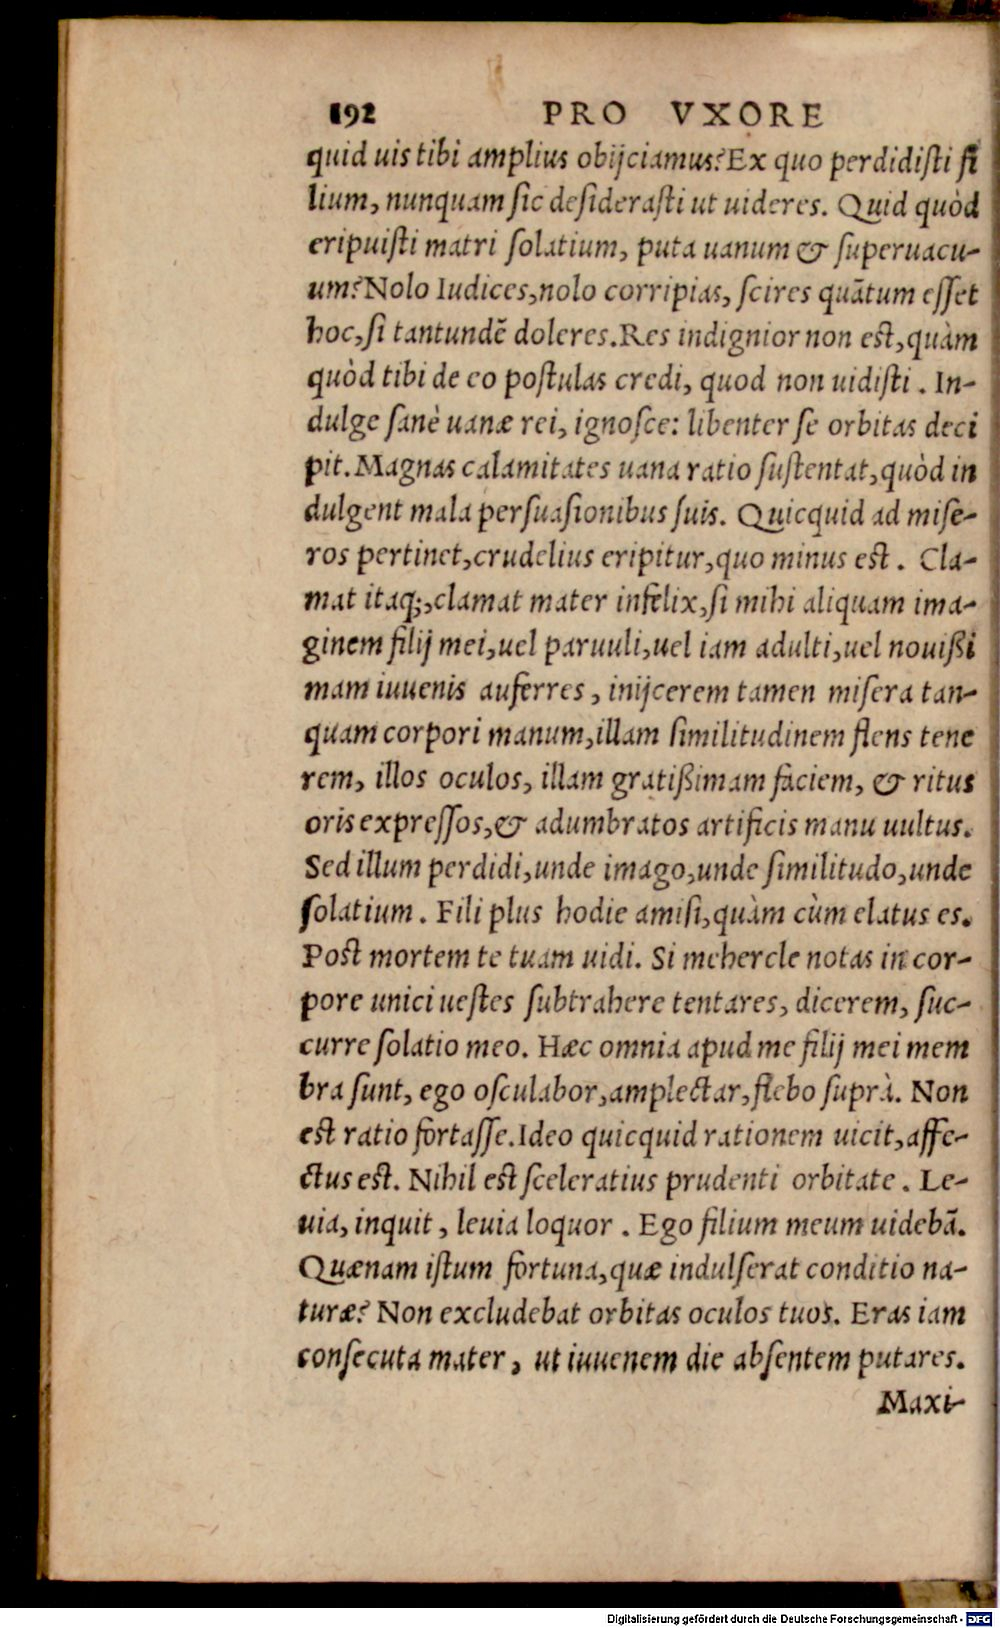 192 PRO VXORE
quid uis tibi amplius obijciamus? Ex quo perdidisti fi
lium, nunquam sic desiderasti ut uideres. Quid quòd
eripuisti matri solatium, puta uanum & superuacu-
um? Nolo Iudices, nolo corripias, scires quātum esset
hoc, si tantundē doleres. Res indignior non est, quàm
quòd tibi de eo postulas credi, quod non uidisti. In-
dulge sanè uanæ rei, ignosce: libenter se orbitas deci
pit. Magnas calamitates uana ratio sustentat, quòd in
dulgent mala persuasionibus suis. Quicquid ad mise-
ros pertinet, crudelius eripitur, quo minus est. Cla-
mat itaq;, clamat mater infelix, si mihi aliquam ima-
ginem filij mei, uel paruuli, uel iam adulti, uel nouißi
mam iuuenis auferres, inijcerem tamen misera tan-
quam corpori manum, illam similitudinem flens tene
rem, illos oculos, illam gratißimam faciem, & ritus
oris expressos, & adumbratos artificis manu uultus.
Sed illum perdidi, unde imago, unde similitudo, unde
solatium. Fili plus hodie amisi, quàm cùm elatus es.
Post mortem te tuam uidi. Si mehercle notas in cor-
pore unici uestes subtrahere tentares, dicerem, suc-
curre solatio meo. Hæc omnia apud me filij mei mem
bra sunt, ego osculabor, amplectar, flebo suprà. Non
est ratio fortasse. Ideo quicquid rationem uicit, affe-
ctus est. Nihil est sceleratius prudenti orbitate. Le-
uia, inquit, leuia loquor. Ego filium meum uidebā.
Quænam istum fortuna, quæ indulserat conditio na-
turæ? Non excludebat orbitas oculos tuos. Eras iam
consecuta mater, ut iuuenem die absentem putares.
Maxi-
Digitalisierung gefördert durch die Deutsche Forschungsgemeinschaft - DFG